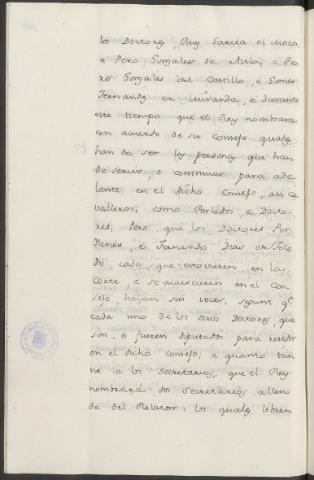 los Doctores, Ruy Garcia el Mozo,
e Pero Gonzales de Avila, e Pe
ro Gonzales del Castillo, é Gomez
Fernandez de Miranda, é durante
este tiempo que el Rey nombrara
con acuerdo de su Consejo quales
han de ser las personas que han
de servir, o continuar para ade
lante en el dicho Consejo, asi ca
valleros, como Perlados, e Docto
res; Pero que los Doctores Per
Yanez, e Fernando Dias de Tole
do cada que estovieren en la
Corte e se acaescieren en el Con
sejo, hayan sus voces, segunt qe
cada uno de los otros Doctores, que
son, o fueren diputados para residir
en el dicho Consejo; e quanto tañ
ne a los Secretarios, que el Rey
nombrara dos Secretarios, allen
de del Relator, los quales libren